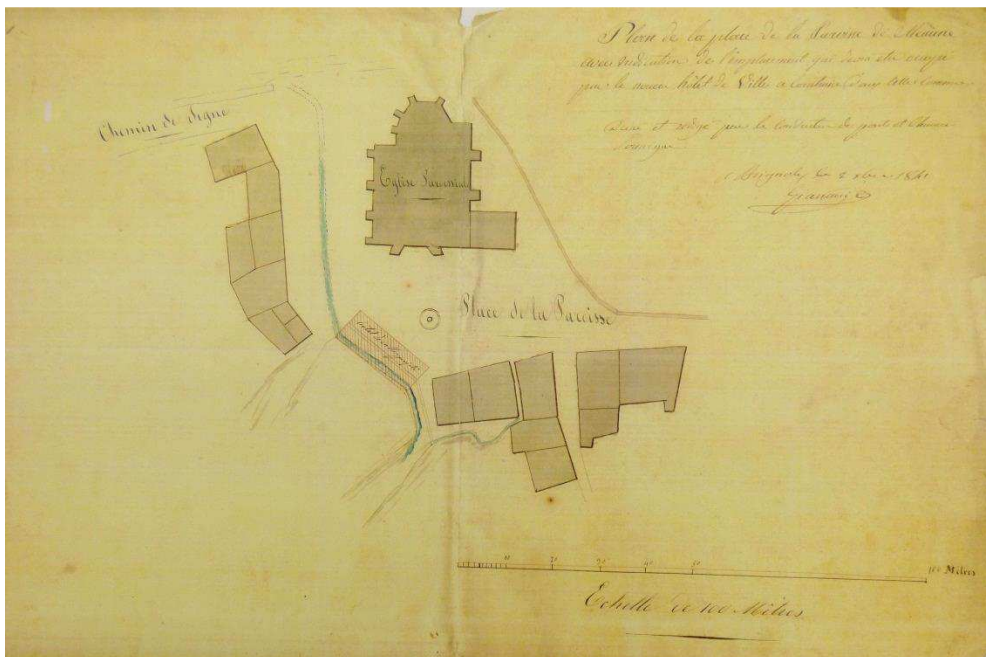 Plan de la place de la Paroisse de Méaune
avec indication de l'emplacement qui devra être occupé
par le nouvel hôtel de Ville à construire dans cette Commune
Dressé et rédigé par le Conducteur des ponts et
A Brignoles le 2 1840
Chemin de Signe
Eglise Paroissiale
Place de la Paroisse
10 20 30 40 50
100 Mètres
Echelle de 100 Mètres